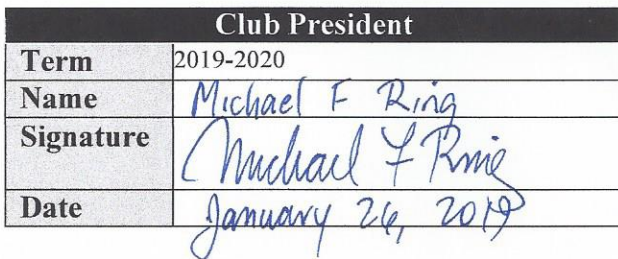 Club President
Term 2019-2020
Name Michael F Ring
Signature Michael F Ring
Date January 26, 2019